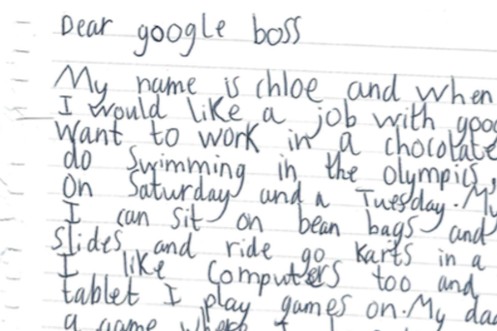 Dear google boss
My name is chloe and when
I would like a job with goog
want to work in a chocolate
do swimming in the olympics,
On Saturday and a Tuesday. My
I can sit on bean bags and
slides and ride go karts in a
I like computers too and
tablet I play games on. My da
a game where